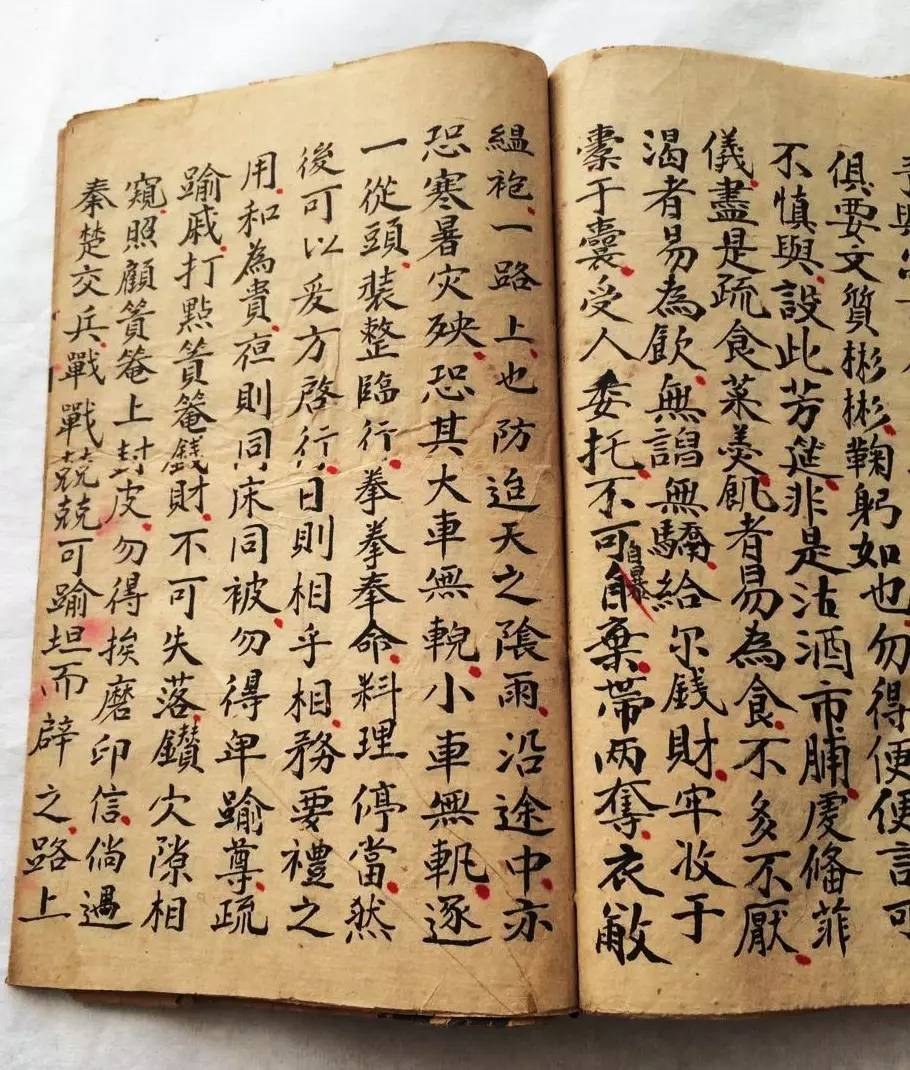 俱要文質彬彬鞠躬如也勿得便便言可
不慎與設此芳筵非是沽酒市脯虔俻菲
儀盡是疏食菜羹飢者易為食不多不厭
渴者易為飲無謟無驕給尔錢財牢收于
橐于囊受人委托不可自暴自棄帶兩奪衣敝
縕袍一路上也防迨天之陰雨沿途中亦
恐寒暑灾殃恐其大車無輗小車無軏逐
一從頭裝整臨行拳拳奉命料理停當然
後可以爰方啓行日則相乎相務要禮之
用和為貴宿則同床同被勿得卑踰尊疏
踰戚打點簣箞錢財不可失落鑚穴隙相
窺照顧簣箞上封皮勿得挨磨印信倘遇
秦楚交兵戰戰兢兢可踰坦而辟之路上